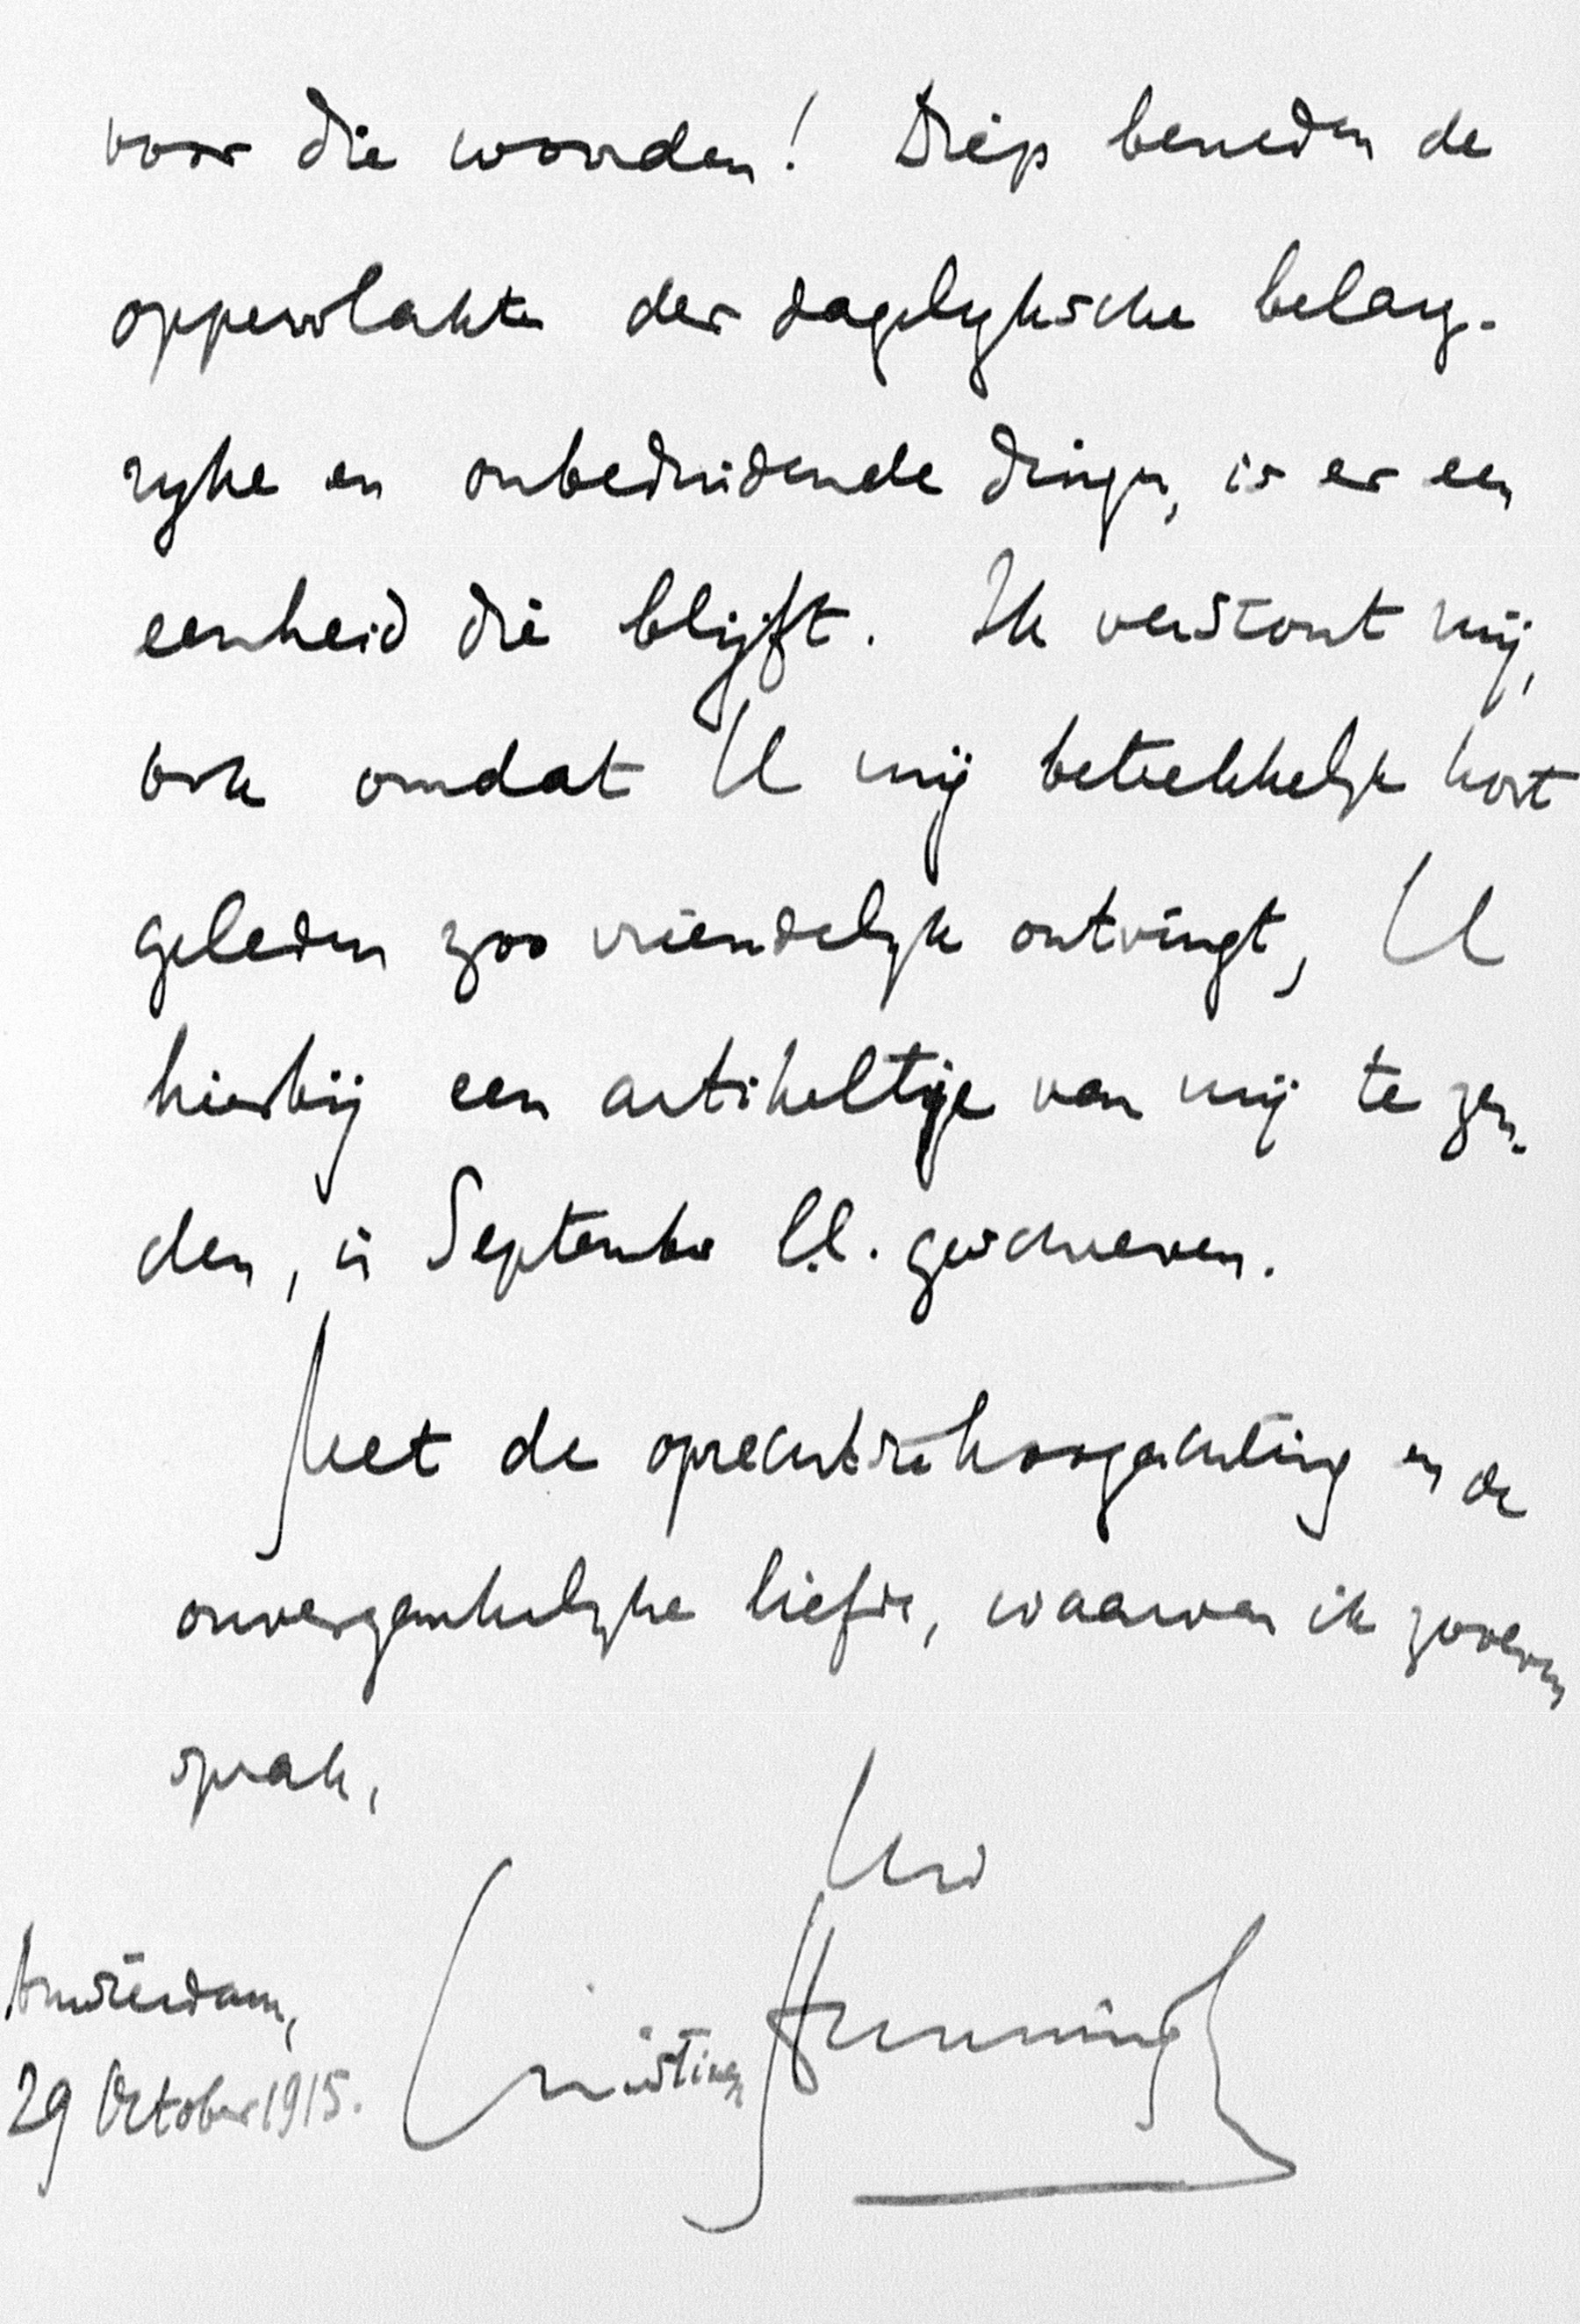 voor die woorden! Diep beneden de
oppervlakte der dagelyksche belang-
ryke en onbeduidende dingen, is er een
eenheid die blijft. Ik verstout mij,
ook omdat U mij betrekkelyk kort
geleden zoo vriendelyk ontvingt, U
hierbij een artikeltije van mij te zen-
den, in September l.l. geschreven.
Met de oprechtste hoogachting en de
onvergankelyke liefde, waarvan ik zooeven
sprak,
Uw
Amsterdam,
Christine
29 October 1915.